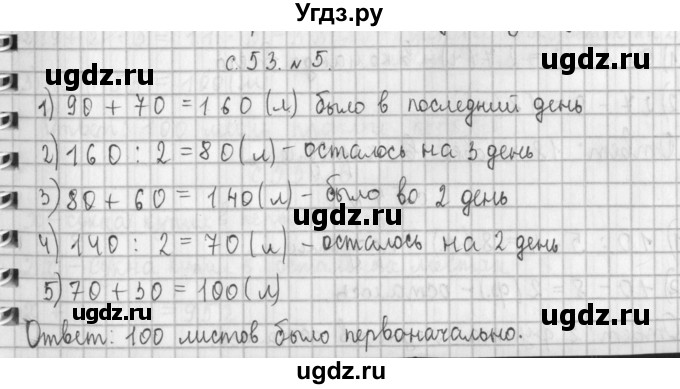 Угдз.ру
с. 53. № 5.
ugdz.ru ugdz.ru
1) 90 + 70 = 160 (л) было в последний день
ugdz.ru
2) 160 : 2 = 80 (л) - осталось на 3 день
ugdz.ru ugdz.ru
3) 80 + 60 = 140 (л) - было во 2 день
ugdz.ru
4) 140 : 2 = 70 (л) - осталось на 2 день
ugdz.ru ugdz.ru
5) 70 + 30 = 100 (л)
ugdz.ru
Ответ: 100 листов было первоначально.
ugdz.ru ugdz.ru